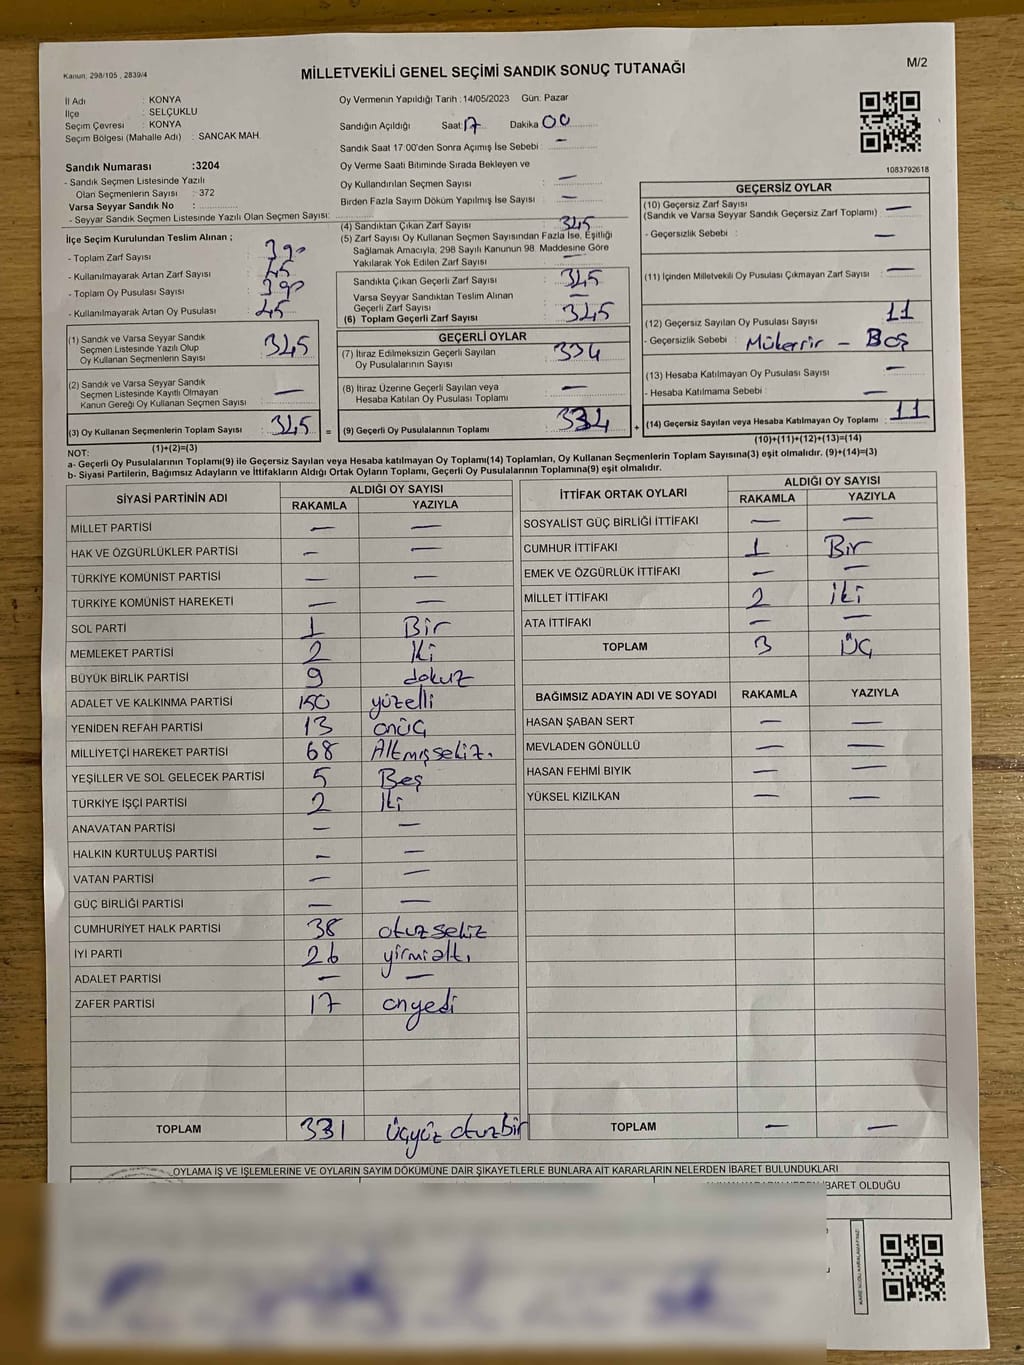 Kanun, 298/105 , 2839/4
MİLLETVEKİLİ GENEL SEÇİMİ SANDIK SONUÇ TUTANAĞI
M/2
İl Adı : KONYA
İlçe : SELÇUKLU
Seçim Çevresi : KONYA
Seçim Bölgesi (Mahalle Adı) : SANCAK MAH.
Sandık Numarası :3204
- Sandık Seçmen Listesinde Yazılı
Olan Seçmenlerin Sayısı : 372
Varsa Seyyar Sandık No :
- Seyyar Sandık Seçmen Listesinde Yazılı Olan Seçmen Sayısı:
Oy Vermenin Yapıldığı Tarih :14/05/2023 Gün: Pazar
Sandığın Açıldığı Saat:17 Dakika 00
Sandık Saat 17:00'den Sonra Açımış İse Sebebi : —
Oy Verme Saati Bitiminde Sırada Bekleyen ve
Oy Kullandırılan Seçmen Sayısı : —
Birden Fazla Sayım Döküm Yapılmış İse Sayısı : —
1083792618
İlçe Seçim Kurulundan Teslim Alınan ;
- Toplam Zarf Sayısı : 390
- Kullanılmayarak Artan Zarf Sayısı : 45
- Toplam Oy Pusulası Sayısı : 390
- Kullanılmayarak Artan Oy Pusulası : 45
(1) Sandık ve Varsa Seyyar Sandık
Seçmen Listesinde Yazılı Olup
Oy Kullanan Seçmenlerin Sayısı : 345
(2) Sandık ve Varsa Seyyar Sandık
Seçmen Listesinde Kayıtlı Olmayan
Kanun Gereği Oy Kullanan Seçmen Sayısı : —
(3) Oy Kullanan Seçmenlerin Toplam Sayısı : 345 =
(1)+(2)=(3)
(4) Sandıktan Çıkan Zarf Sayısı : 345
(5) Zarf Sayısı Oy Kullanan Seçmen Sayısından Fazla İse, Eşitliği
Sağlamak Amacıyla, 298 Sayılı Kanunun 98. Maddesine Göre
Yakılarak Yok Edilen Zarf Sayısı : —
Sandıkta Çıkan Geçerli Zarf Sayısı : 345
Varsa Seyyar Sandıktan Teslim Alınan
Geçerli Zarf Sayısı : —
(6) Toplam Geçerli Zarf Sayısı : 345
GEÇERLİ OYLAR
(7) İtiraz Edilmeksizin Geçerli Sayılan
Oy Pusulalarının Sayısı : 334
(8) İtiraz Üzerine Geçerli Sayılan veya
Hesaba Katılan Oy Pusulası Toplamı : —
(9) Geçerli Oy Pusulalarının Toplamı : 334 +
GEÇERSİZ OYLAR
(10) Geçersiz Zarf Sayısı
(Sandık ve Varsa Seyyar Sandık Geçersiz Zarf Toplamı) : —
- Geçersizlik Sebebi : —
(11) İçinden Milletvekili Oy Pusulası Çıkmayan Zarf Sayısı : —
(12) Geçersiz Sayılan Oy Pusulası Sayısı : 11
- Geçersizlik Sebebi : Mükerrir – Boş
(13) Hesaba Katılmayan Oy Pusulası Sayısı : —
- Hesaba Katılmama Sebebi : —
(14) Geçersiz Sayılan veya Hesaba Katılmayan Oy Toplamı : 11
(10)+(11)+(12)+(13)=(14)
NOT:
a- Geçerli Oy Pusulalarının Toplamı(9) ile Geçersiz Sayılan veya Hesaba katılmayan Oy Toplamı(14) Toplamları, Oy Kullanan Seçmenlerin Toplam Sayısına(3) eşit olmalıdır. (9)+(14)=(3)
b- Siyasi Partilerin, Bağımsız Adayların ve İttifakların Aldığı Ortak Oyların Toplamı, Geçerli Oy Pusulalarının Toplamına(9) eşit olmalıdır.
SİYASİ PARTİNİN ADI ALDIĞI OY SAYISI
RAKAMLA YAZIYLA
MİLLET PARTİSİ — —
HAK VE ÖZGÜRLÜKLER PARTİSİ — —
TÜRKİYE KOMÜNİST PARTİSİ — —
TÜRKİYE KOMÜNİST HAREKETİ — —
SOL PARTİ 1 Bir
MEMLEKET PARTİSİ 2 İki
BÜYÜK BİRLİK PARTİSİ 9 dokuz
ADALET VE KALKINMA PARTİSİ 150 yüzelli
YENİDEN REFAH PARTİSİ 13 onüç
MİLLİYETÇİ HAREKET PARTİSİ 68 Altmışsekiz.
YEŞİLLER VE SOL GELECEK PARTİSİ 5 Beş
TÜRKİYE İŞÇİ PARTİSİ 2 İki
ANAVATAN PARTİSİ — —
HALKIN KURTULUŞ PARTİSİ — —
VATAN PARTİSİ — —
GÜÇ BİRLİĞİ PARTİSİ — —
CUMHURİYET HALK PARTİSİ 38 otuzsekiz
İYİ PARTİ 26 yirmialtı
ADALET PARTİSİ — —
ZAFER PARTİSİ 17 onyedi
TOPLAM 331 üçyüz otuzbir
İTTİFAK ORTAK OYLARI ALDIĞI OY SAYISI
RAKAMLA YAZIYLA
SOSYALİST GÜÇ BİRLİĞİ İTTİFAKI — —
CUMHUR İTTİFAKI 1 Bir
EMEK VE ÖZGÜRLÜK İTTİFAKI — —
MİLLET İTTİFAKI 2 iki
ATA İTTİFAKI — —
TOPLAM 3 ÜÇ
BAĞIMSIZ ADAYIN ADI VE SOYADI RAKAMLA YAZIYLA
HASAN ŞABAN SERT — —
MEVLADEN GÖNÜLLÜ — —
HASAN FEHMİ BIYIK — —
YÜKSEL KIZILKAN — —
TOPLAM — —
OYLAMA İŞ VE İŞLEMLERİNE VE OYLARIN SAYIM DÖKÜMÜNE DAİR ŞİKAYETLERLE BUNLARA AİT KARARLARIN NELERDEN İBARET BULUNDUKLARI
İBARET OLDUĞU